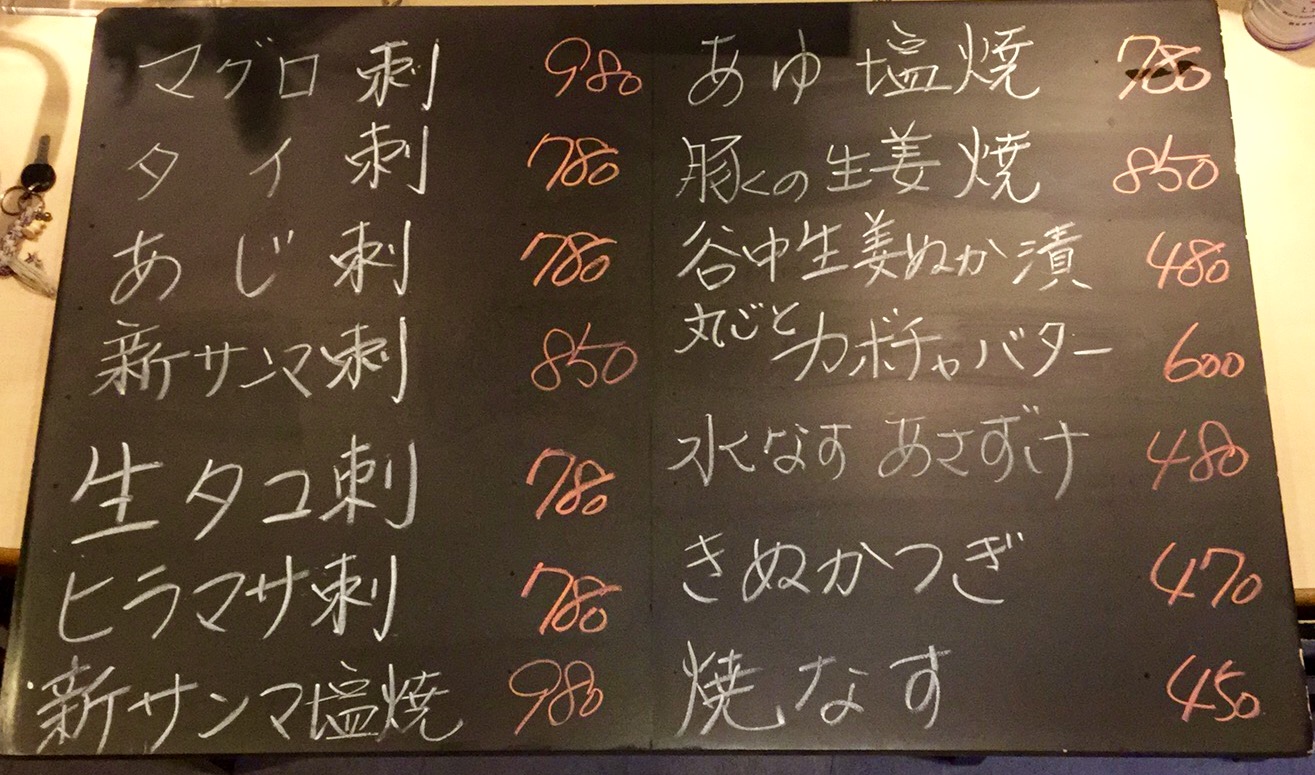 マグロ刺 980
タイ刺 780
あじ刺 780
新サンマ刺 850
生タコ刺 780
ヒラマサ刺 780
新サンマ塩焼 980
あゆ塩焼 780
豚くの生姜焼 850
谷中生姜ぬか漬 480
丸ごとカボチャバター 600
水なすあさずけ 480
きぬかつぎ 470
焼なす 450